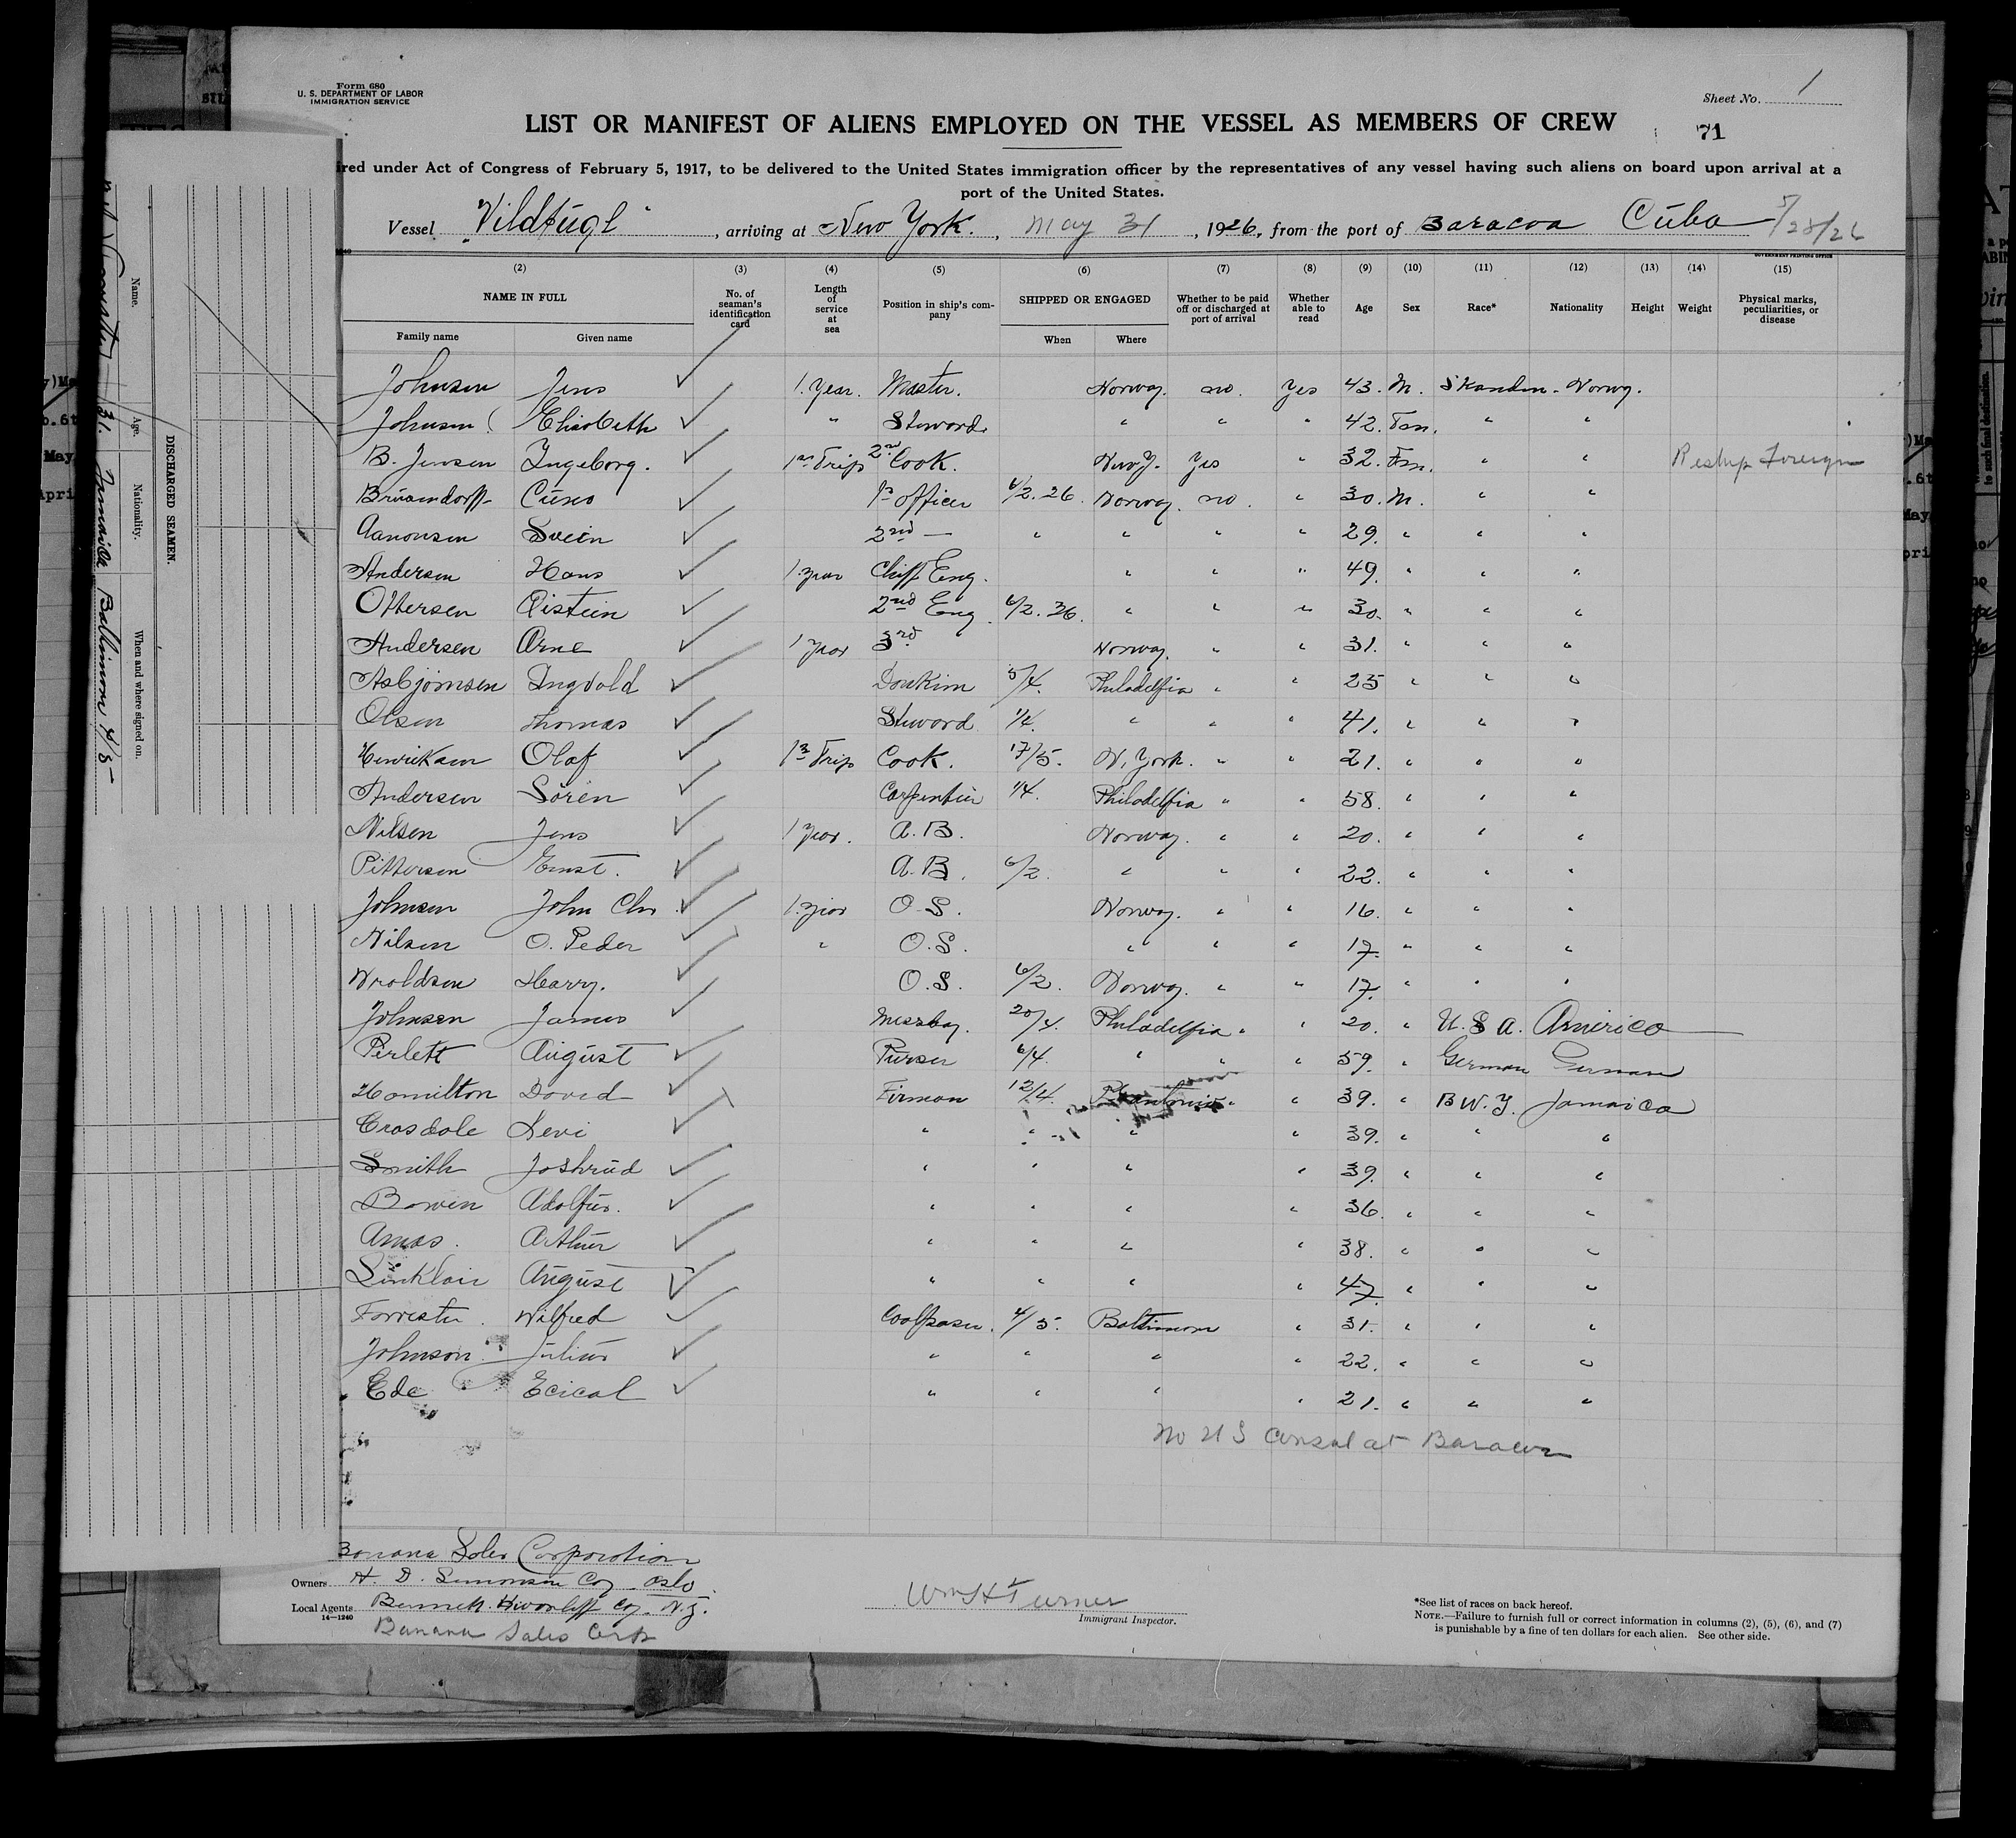 Form 680
U. S. DEPARTMENT OF LABOR
IMMIGRATION SERVICE
Sheet No. 1
LIST OR MANIFEST OF ALIENS EMPLOYED ON THE VESSEL AS MEMBERS OF CREW
71
ired under Act of Congress of February 5, 1917, to be delivered to the United States immigration officer by the representatives of any vessel having such aliens on board upon arrival at a
port of the United States.
Vessel "Vildfugl", arriving at New York., May 31, 1926, from the port of Baracoa Cuba 5/28/26
GOVERNMENT PRINTING OFFICE
(2) (3) (4) (5) (6) (7) (8) (9) (10) (11) (12) (13) (14) (15)
NAME IN FULL No. of seaman's identification card Length of service at sea Position in ship's company SHIPPED OR ENGAGED Whether to be paid off or discharged at port of arrival Whether able to read Age Sex Race* Nationality Height Weight Physical marks, peculiarities, or disease
Family name Given name When Where
Johnsen Jens 1 Year. Master. Norway. no. Yes 43. M. Skandin. Norwg.
Johnsen Elisabeth " Steward. " " " 42. Fm. " "
B. Jensen Ingeborg. 1st Trip 2nd Cook. New Y. Yes " 32. Fm. " " Reship Foreign
Cuno 1st officer 6/2. 26. Norway. no. " 30. M. " "
Aanonsen Svein 2nd — " " " " 29. " " "
Andersen Hans 1 year Chiff Eng. " " " 49. " " "
Ottersen Oistein 2nd Eng. 6/2. 26. " " " 30. " " "
Andersen Arne 1 year 3rd. Norway. " " 31. " " "
Asbjörnsen Ingvald Donkim 5/4. Philadelfia " " 25 " " "
Olsen Thomas Steward 1/4. " " " 41. " " "
Henriksen Olaf 1st Trip Cook. 17/5. N. York. " " 21. " " "
Andersen Sören Carpentier 1/4. Philadelfia " " 58. " " "
Nilsen Jens 1 year. A. B. Norway. " " 20. " " "
Pittersen Ernst. A. B. 6/2. " " " 22. " " "
Johnsen John Chr. 1 year O. S. Norway. " " 16. " " "
Nilsen O. Peder " O. S. " " " 17. " " "
Wroldsen Harry. O. S. 6/2. Norway. " " 17. " " "
Johnsen James Messboy. 20/4. Philadelfia " " 20. " U. S. A. America
Perlett August Purser 6/4. " " " 59. " German German
Hamilton David Firman 12/4. " " 39. " B W. I. Jamaica
Crosdale Levi " " " " 39. " " "
Smith Joshrud " " " " 39. " " "
Bowen Adolfus. " " " " 36. " " "
Amos. Arthur " " " " 38. " " "
Sinklair August " " " " 47. " " "
Forrester. Wilfred Coolpaser. 4/5. Baltimore " 31. " " "
Johnson. Julius " " " " 22. " " "
Ede Ecical " " " " 21. " " "
No U S Consul at Baracoa
Banana Sales Corporation
Owners H. D. Simonsen Coy. Oslo.
Local Agents Bennett. Coy. N. Y.
14—1240
Banana Sales Corp
Wm H Turner
Immigrant Inspector.
*See list of races on back hereof.
NOTE.—Failure to furnish full or correct information in columns (2), (5), (6), and (7)
is punishable by a fine of ten dollars for each alien. See other side.
DISCHARGED SEAMEN.
Name. Age. Nationality. When and where signed on.
31. Baltimore 4/5